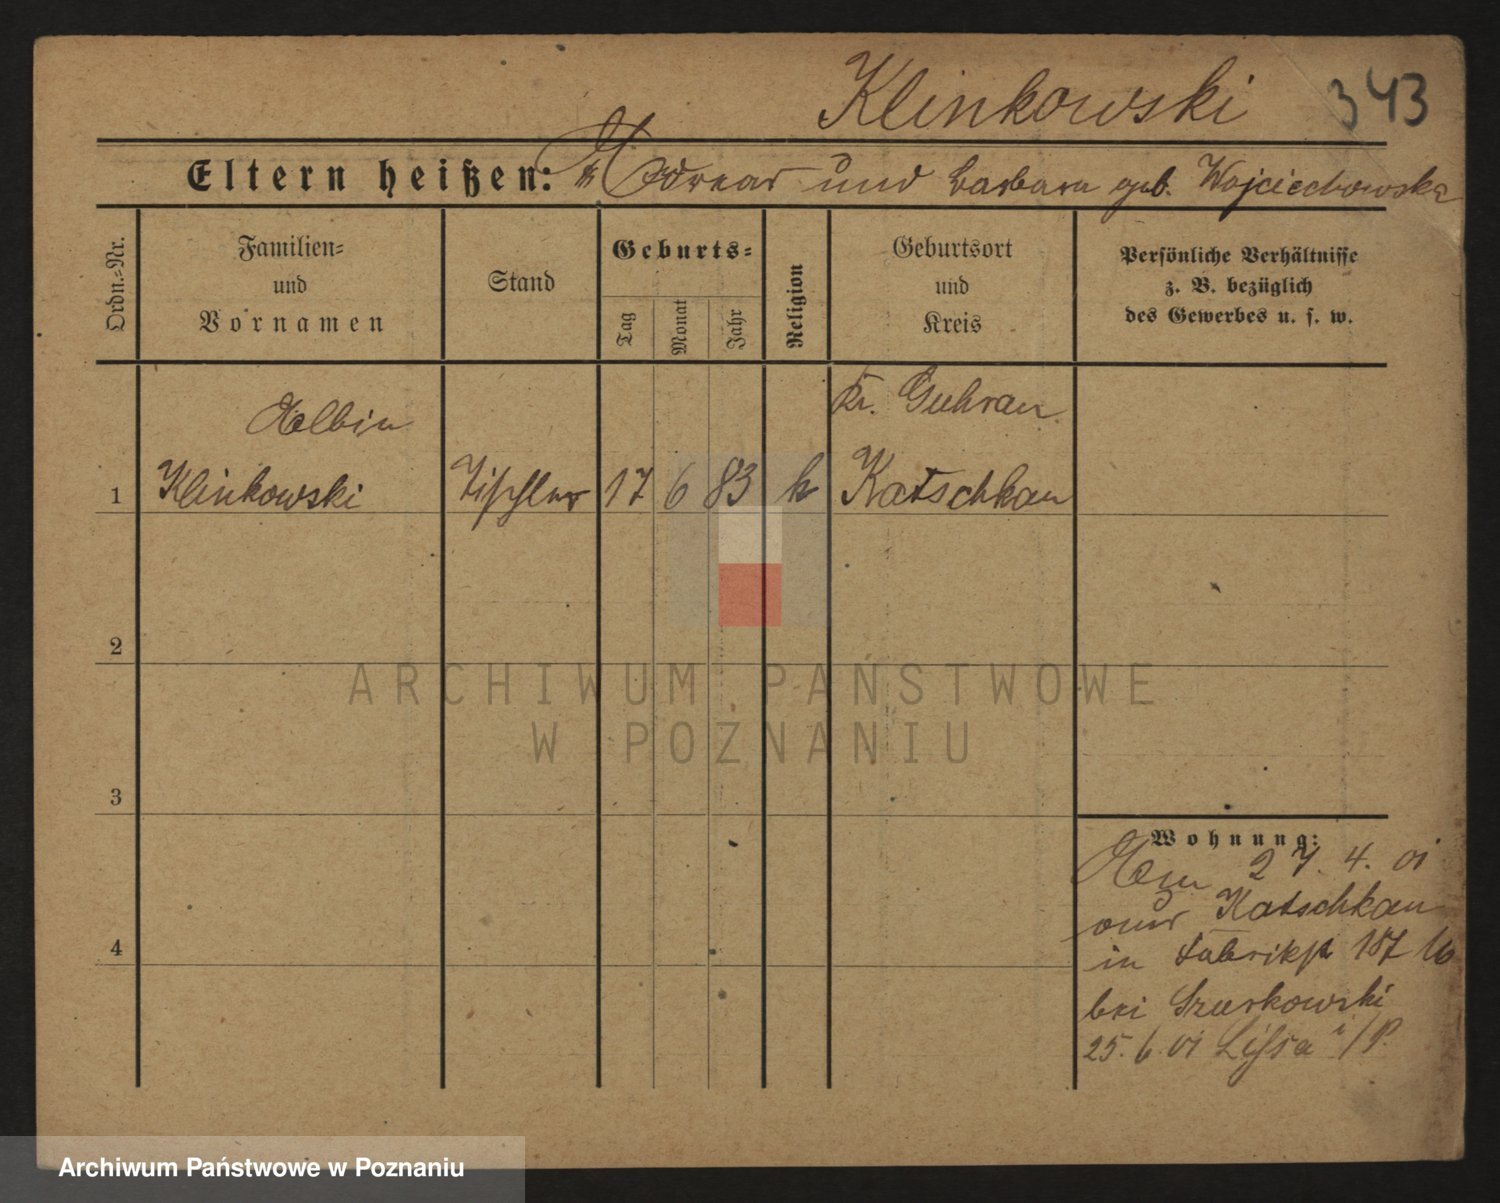 Klinkowski 343
Eltern heißen: Andreas und Barbara geb. Wojciechowska
Ordn.-Nr.
Familien-
und
Vornamen
Stand
Geburts-
Tag
Monat
Jahr
Religion
Geburtsort
und
Kreis
Persönliche Verhältnisse
z. B. bezüglich
des Gewerbes u. s. w.
Albin
Kr. Guhrau
1 Klinkowski Tischler 17 6 83 k Katschkau
2
3
4
ARCHIWUM PAŃSTWOWE
W POZNANIU
Wohnung:
Am 27. 4. 01
aus Katschkau
in Fabrikst 187
bei Szurkowski
25. 6 01 Lissa i/P.
Archiwum Państwowe w Poznaniu